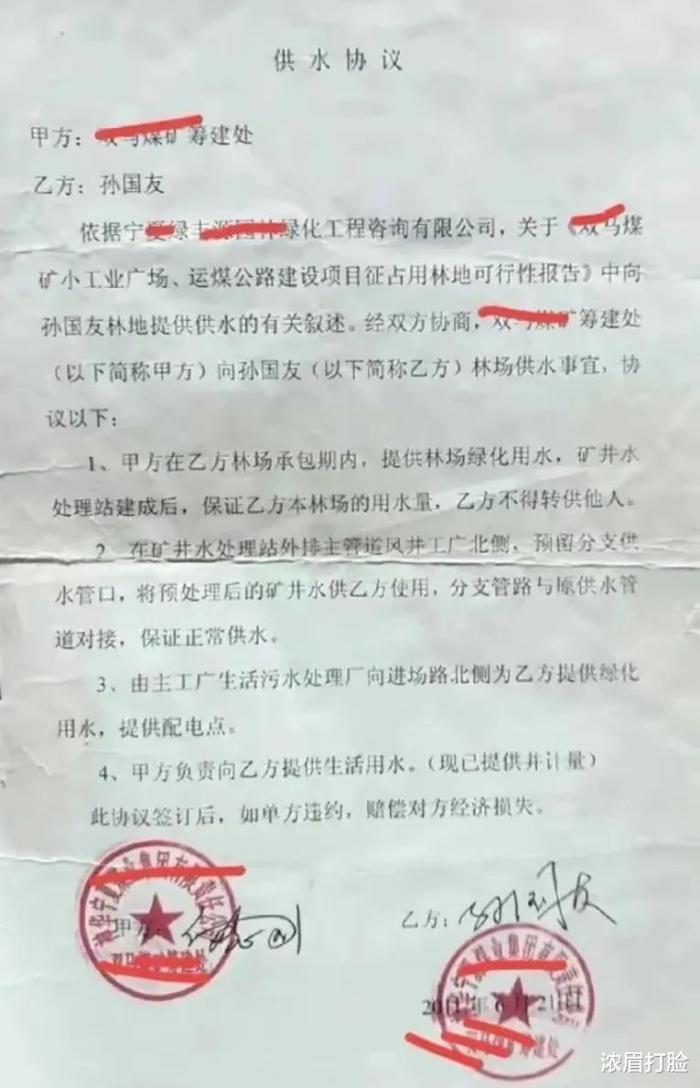 供水协议
甲方：双马煤矿筹建处
乙方：孙国友
依据宁夏绿丰源园林绿化工程咨询有限公司，关于《双马煤
矿小工业广场、运煤公路建设项目征占用林地可行性报告》中向
孙国友林地提供供水的有关叙述。经双方协商，双马煤矿筹建处
（以下简称甲方）向孙国友（以下简称乙方）林场供水事宜，协
议以下：
1、甲方在乙方林场承包期内，提供林场绿化用水，矿井水
处理站建成后，保证乙方本林场的用水量，乙方不得转供他人。
2、在矿井水处理站外排主管道风井工广北侧，预留分支供
水管口，将预处理后的矿井水供乙方使用，分支管路与原供水管
道对接，保证正常供水。
3、由主工广生活污水处理厂向进场路北侧为乙方提供绿化
用水，提供配电点。
4、甲方负责向乙方提供生活用水。（现已提供井计量）
此协议签订后，如单方违约，赔偿对方经济损失。
甲方：
乙方：孙国友
2011年6月21日
浓眉打脸